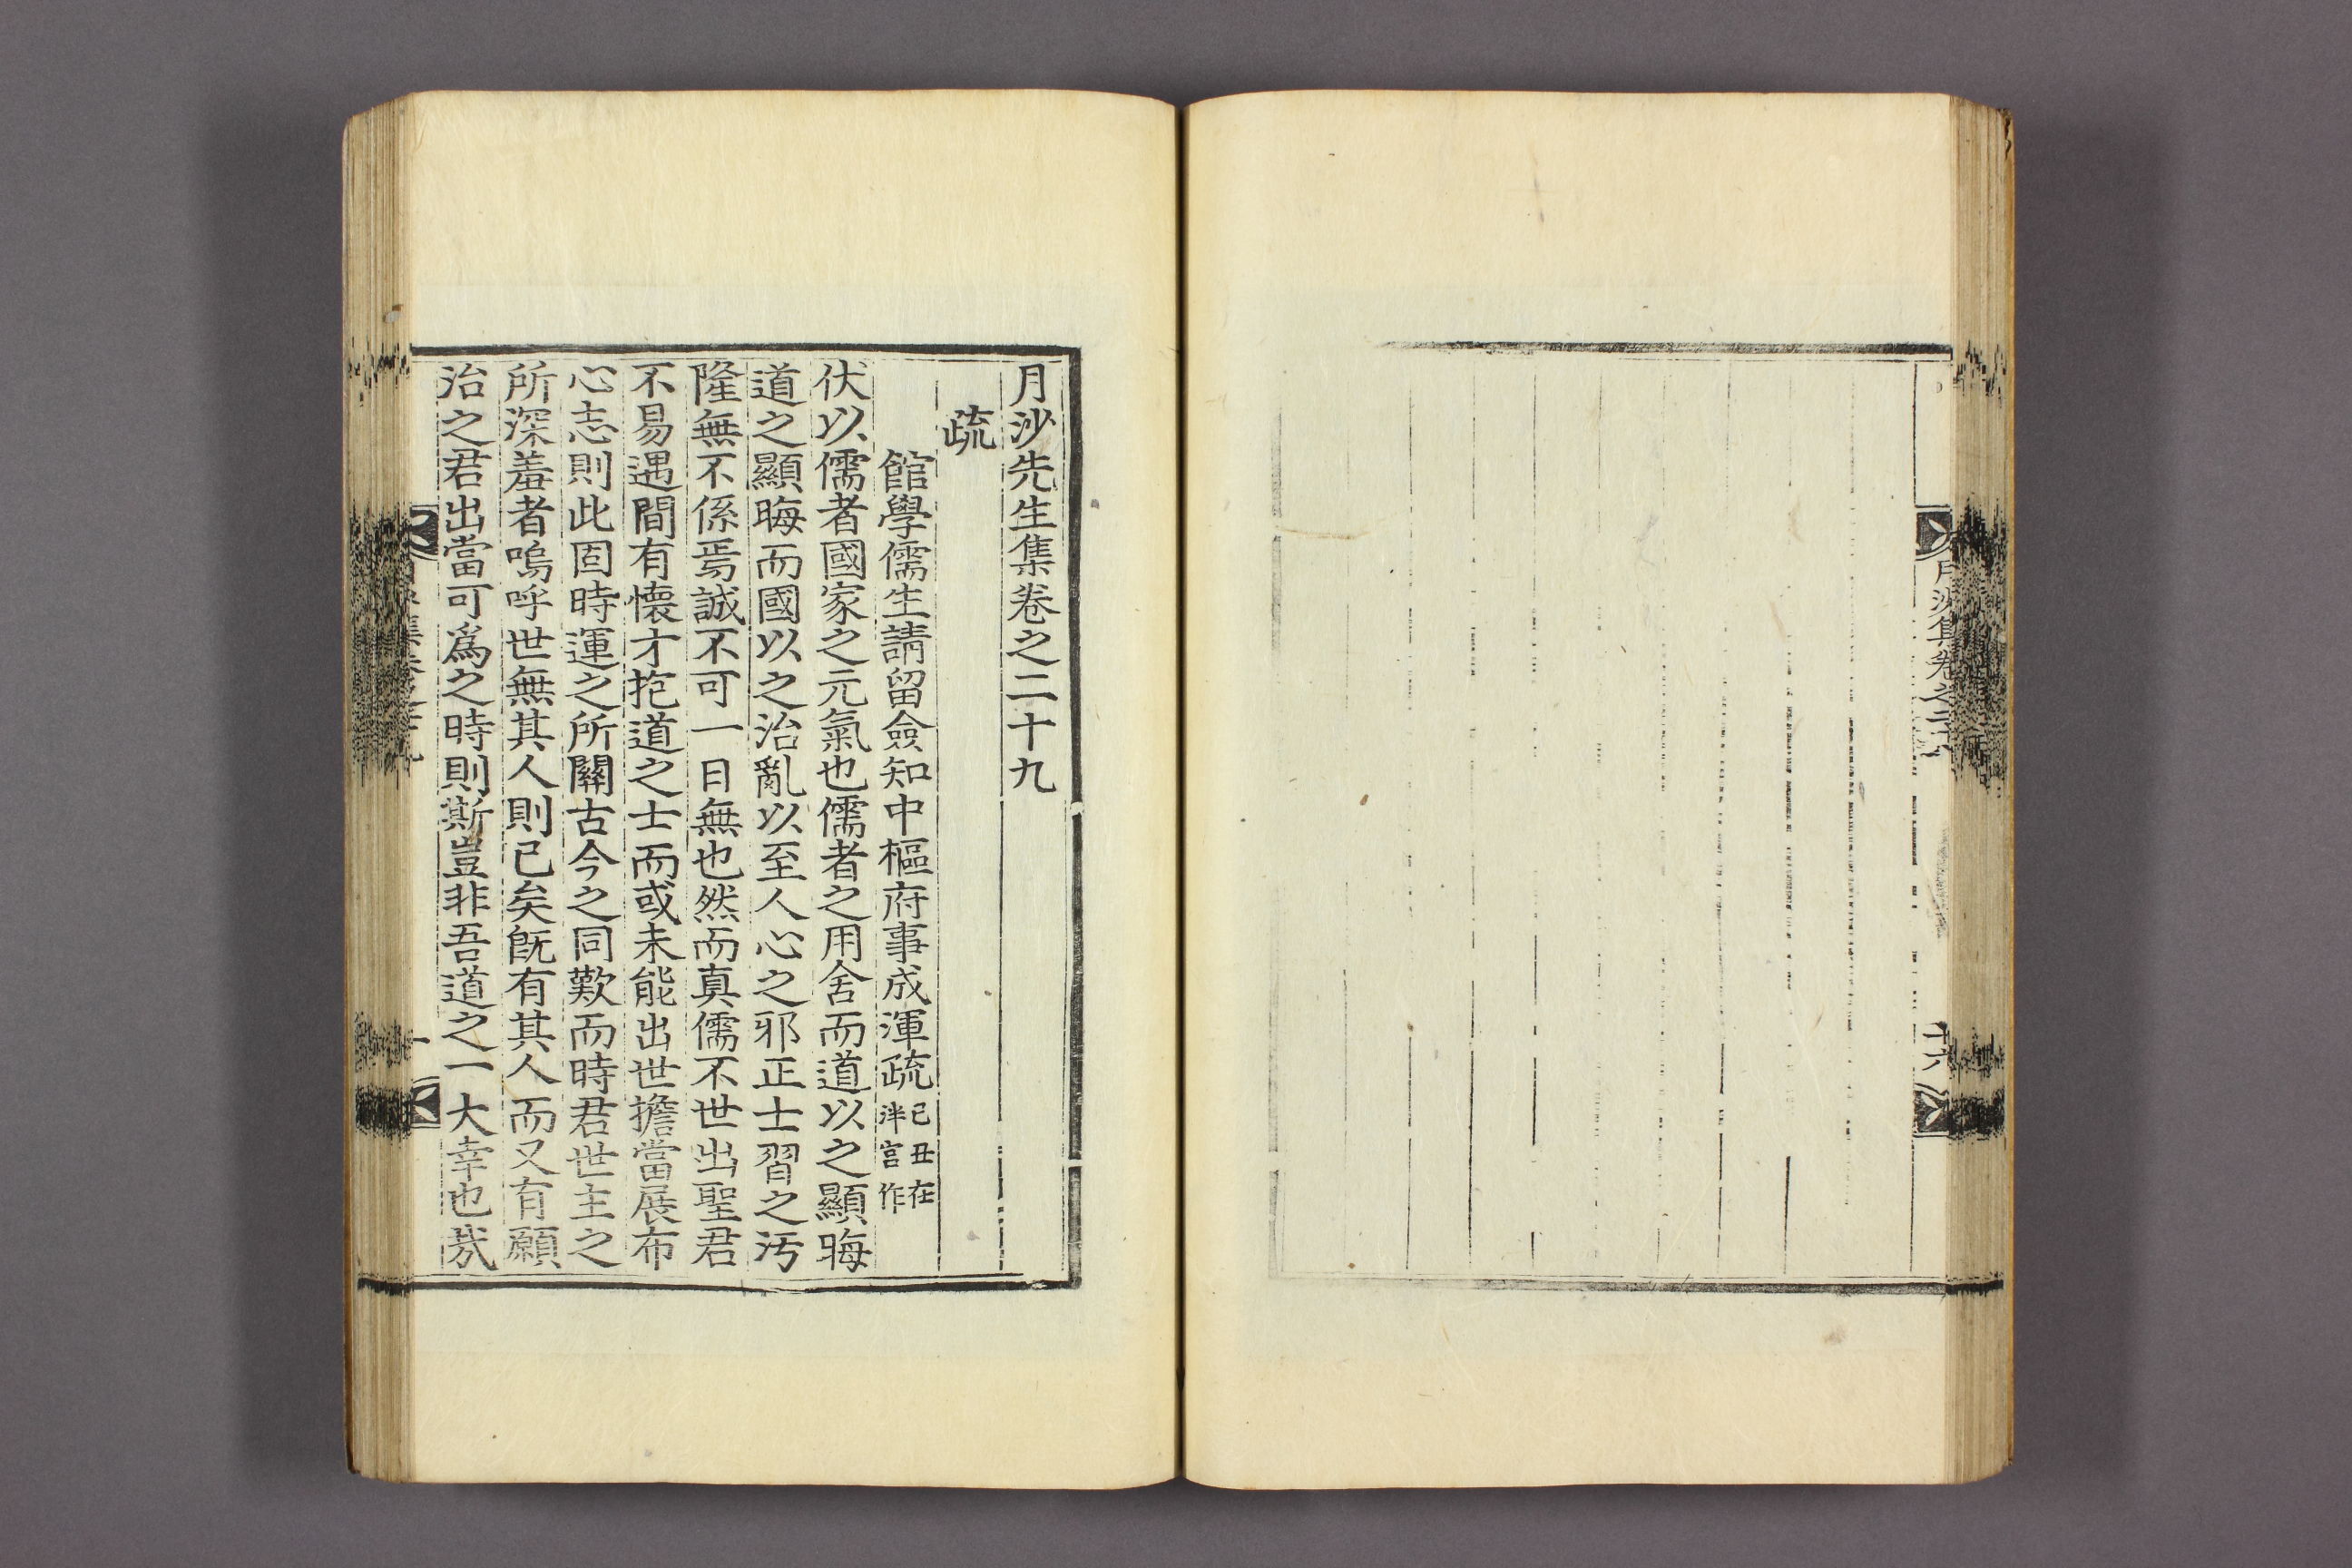 月沙集卷之二十
十六
月沙先生集卷之二十九
疏
館學儒生請留僉知中樞府事成渾疏 己丑在泮宮作
伏以儒者國家之元氣也儒者之用舍而道以之顯晦
道之顯晦而國以之治亂以至人心之邪正士習之汚
隆無不係焉誠不可一日無也然而真儒不世出聖君
不易遇間有懷才抱道之士而或未能出世擔當展布
心志則此固時運之所關古今之同歎而時君世主之
所深羞者嗚呼世無其人則已矣旣有其人而又有願
治之君出當可爲之時則斯豈非吾道之一大幸也哉
一